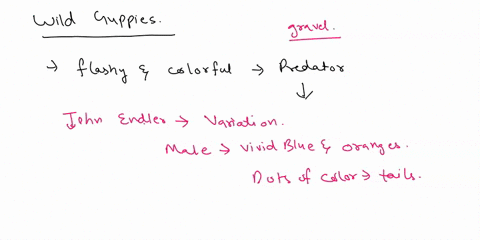 Wild Guppies.
gravel.
→ flashy & colorful → Predator
↓
John Endler → Variation.
Male → vivid Blue & oranges.
Dots of color → tails.